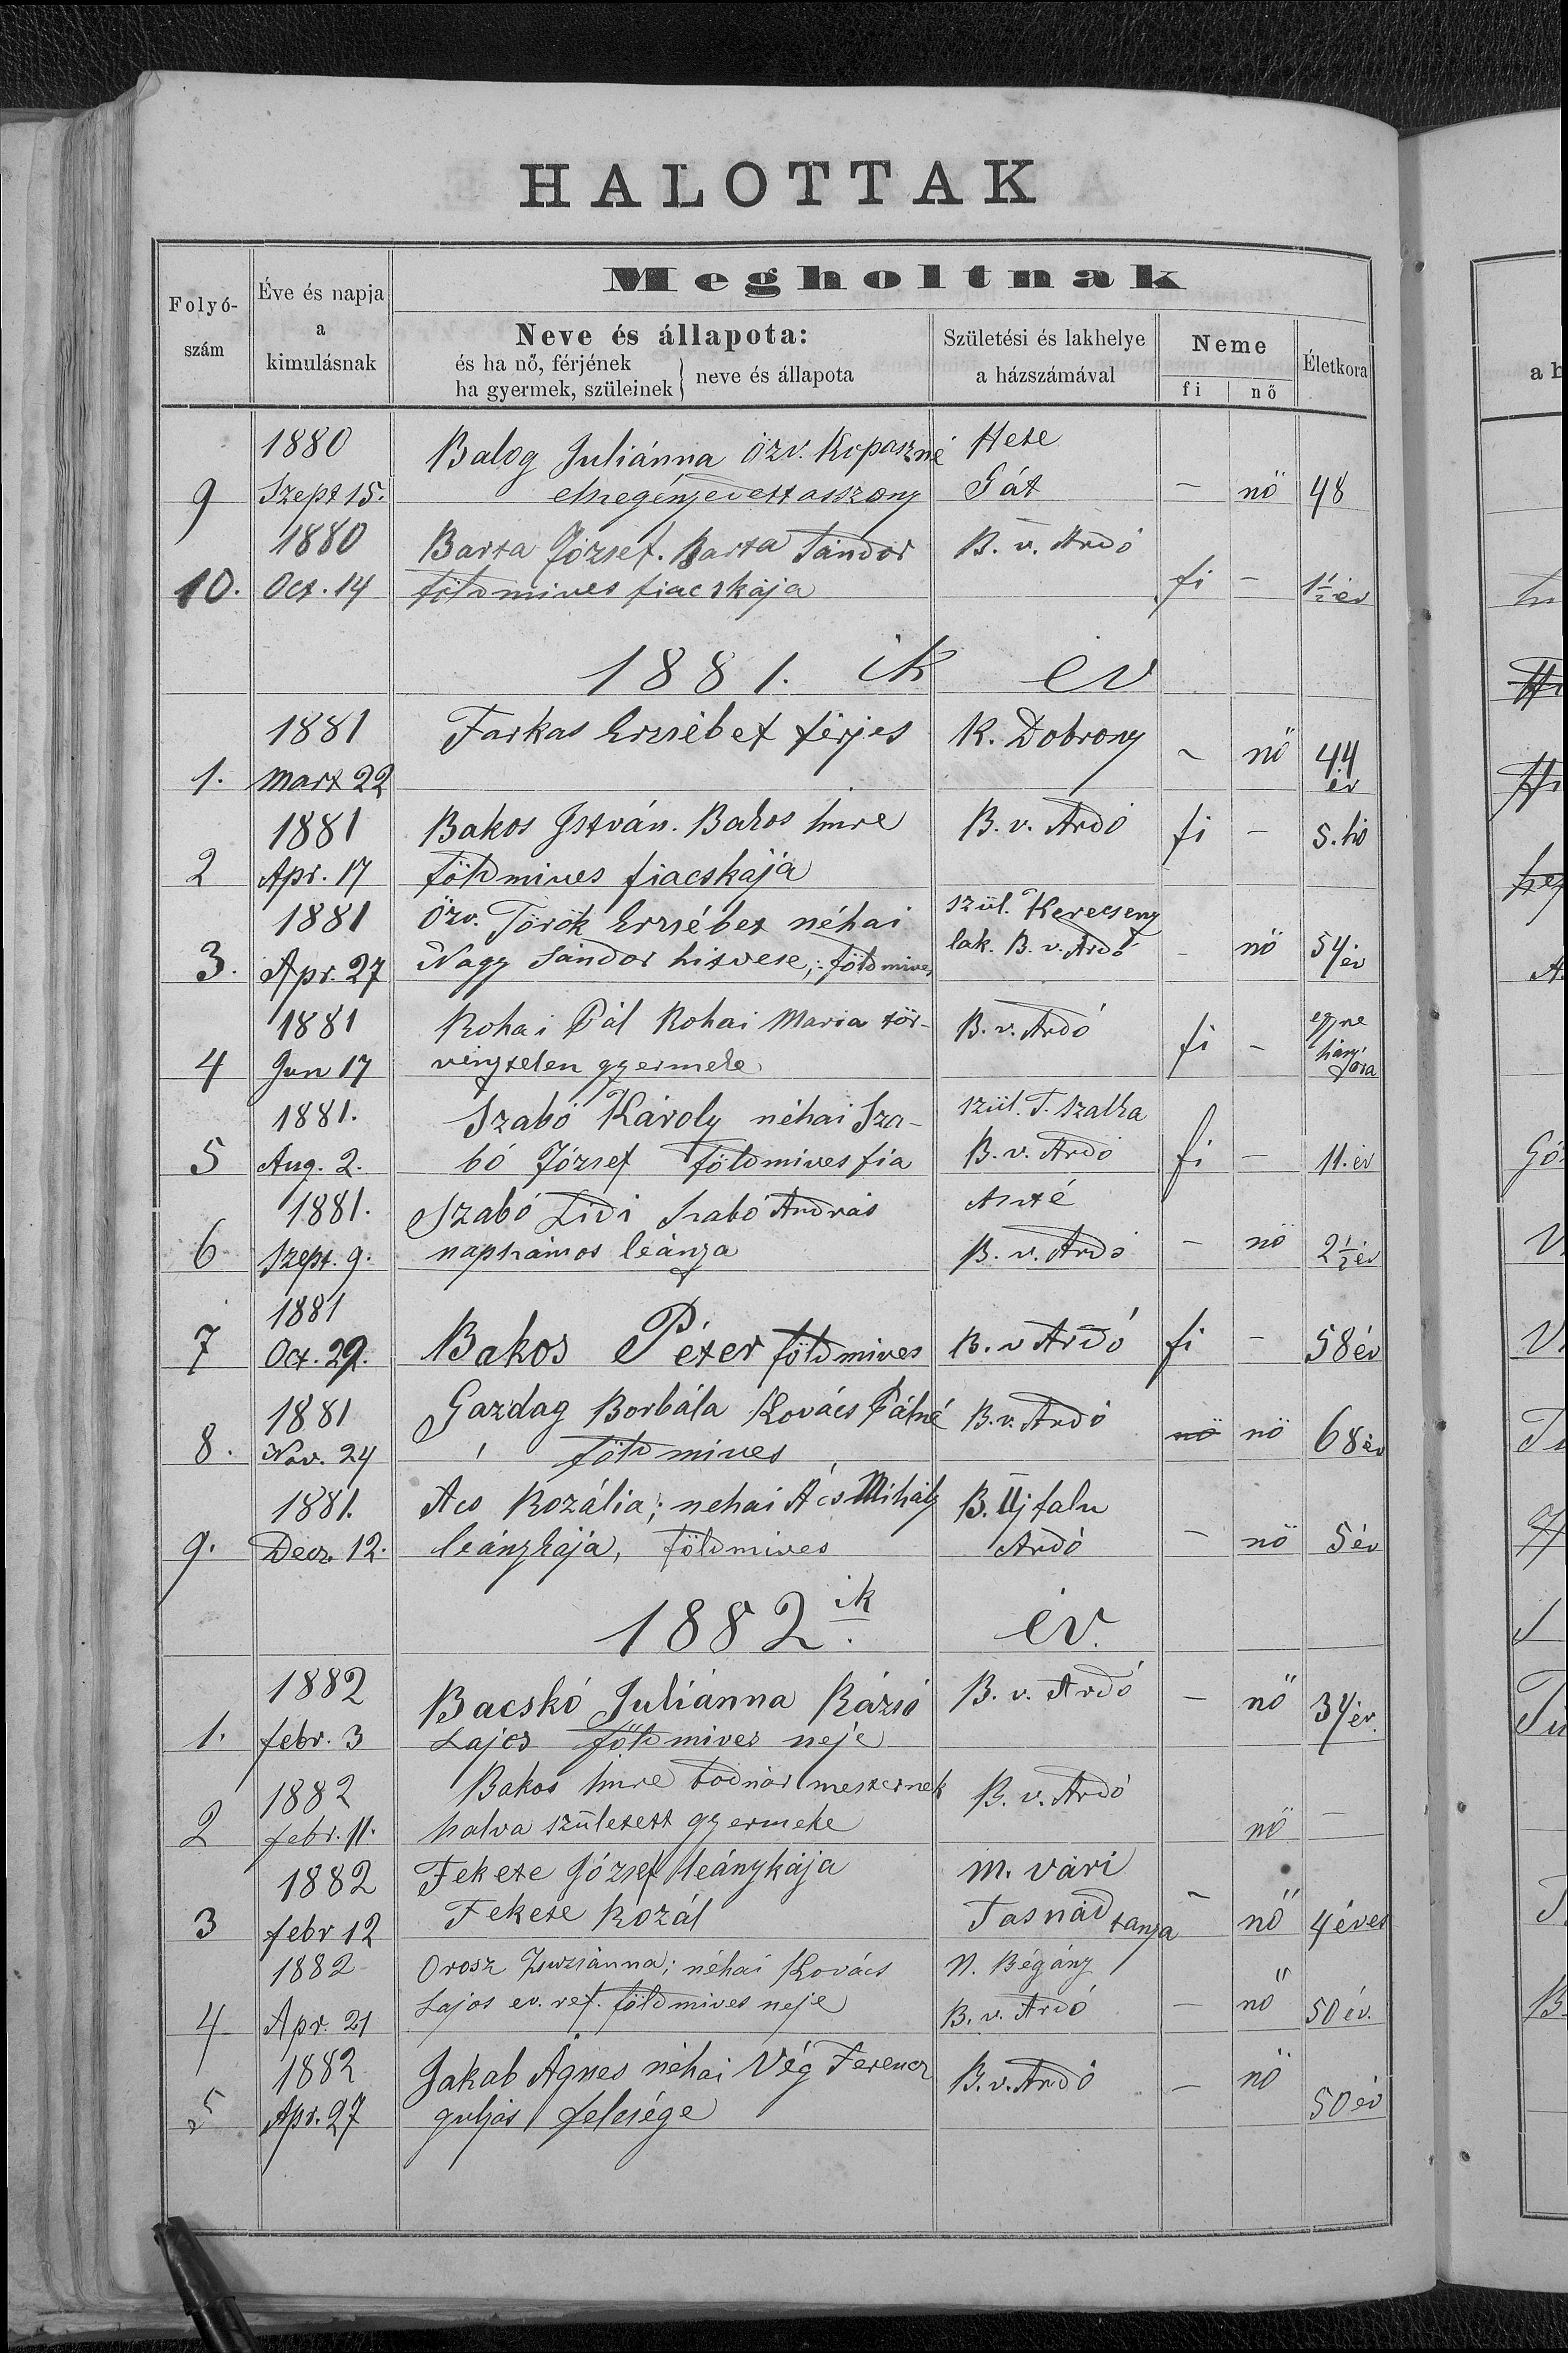 HALOTTAK
Folyó-
szám
Éve és napja
a
kimulásnak
Megholtnak
Neve és állapota:
és ha nő, férjének
ha gyermek, szüleinek
neve és állapota
Születési és lakhelye
a házszámával
Neme
fi
nő
Életkora
1880 Balog Juliánna özv. Kopaszné Hete
9 Szept 15. elszegényedett asszony Gát – nö 48
1880 Barta József. Barta Sándor B. v. Ardó
10. Oct. 14 földmives fiacskája fi – 1½ év
1881. ik év
1881 Farkas Erzsébet férjes K. Dobrony – nö 44
1. Mart 22 év
1881 Bakos István. Bakos Imre B. v. Ardó fi – 5. hó
2 Apr. 17 földmives fiacskája
1881 Özv. Török Erzsébet néhai szül. Kerecseny
3. Apr. 27 Nagy Sándor hitvese; földmives lak. B. v. Ardó – nö 54 év
1881 Rohai Pál Rohai Maria tör- B. v. Ardó fi – egyne
4 Jun 17 vénytelen gyermeke hány óra
1881. Szabó Károly néhai Sza- szül. T. Szalka
5 Aug. 2. bó József földmives fia B. v. Ardó fi – 11. év
1881. Szabó Lidi Szabó András
6 Szept. 9. napszámos leánya B. v. Ardó – nö 2½ év
1881
7 Oct. 29. Bakos Péter földmives B. v Ardó fi – 58 év
1881 Gazdag Borbála Kovács Pálné B. v. Ardó nö nö 68 év
8. Nov. 24 földmives
1881. Acs Rozália; nehai Ács Mihály B. Ujfalu
9. Decz. 12. leánykája, földmives Ardó – nö 5 év
1882. ik év.
1882 Bacskó Juliánna Rázsó B. v. Ardó – nö 34 év.
1. febr. 3 Lajos földmives neje
1882 Bakos Imre bodnár mesternek B. v. Ardó
2 febr. 11. halva született gyermeke nö –
1882 Fekete József leánykája M. Vári
3 febr 12 Fekete Rozál Tasnád tanya – nö 4 éves
1882 Orosz Zsuzsánna; néhai Kovács N. Bégány
4 Apr. 21 Lajos ev. ref. földmives neje B. v. Ardó – nö 50 év.
1882 Jakab Ágnes néhai Vég Ferencz B. v. Ardó – nö
5 Apr. 27 gulyás felesége 50 év